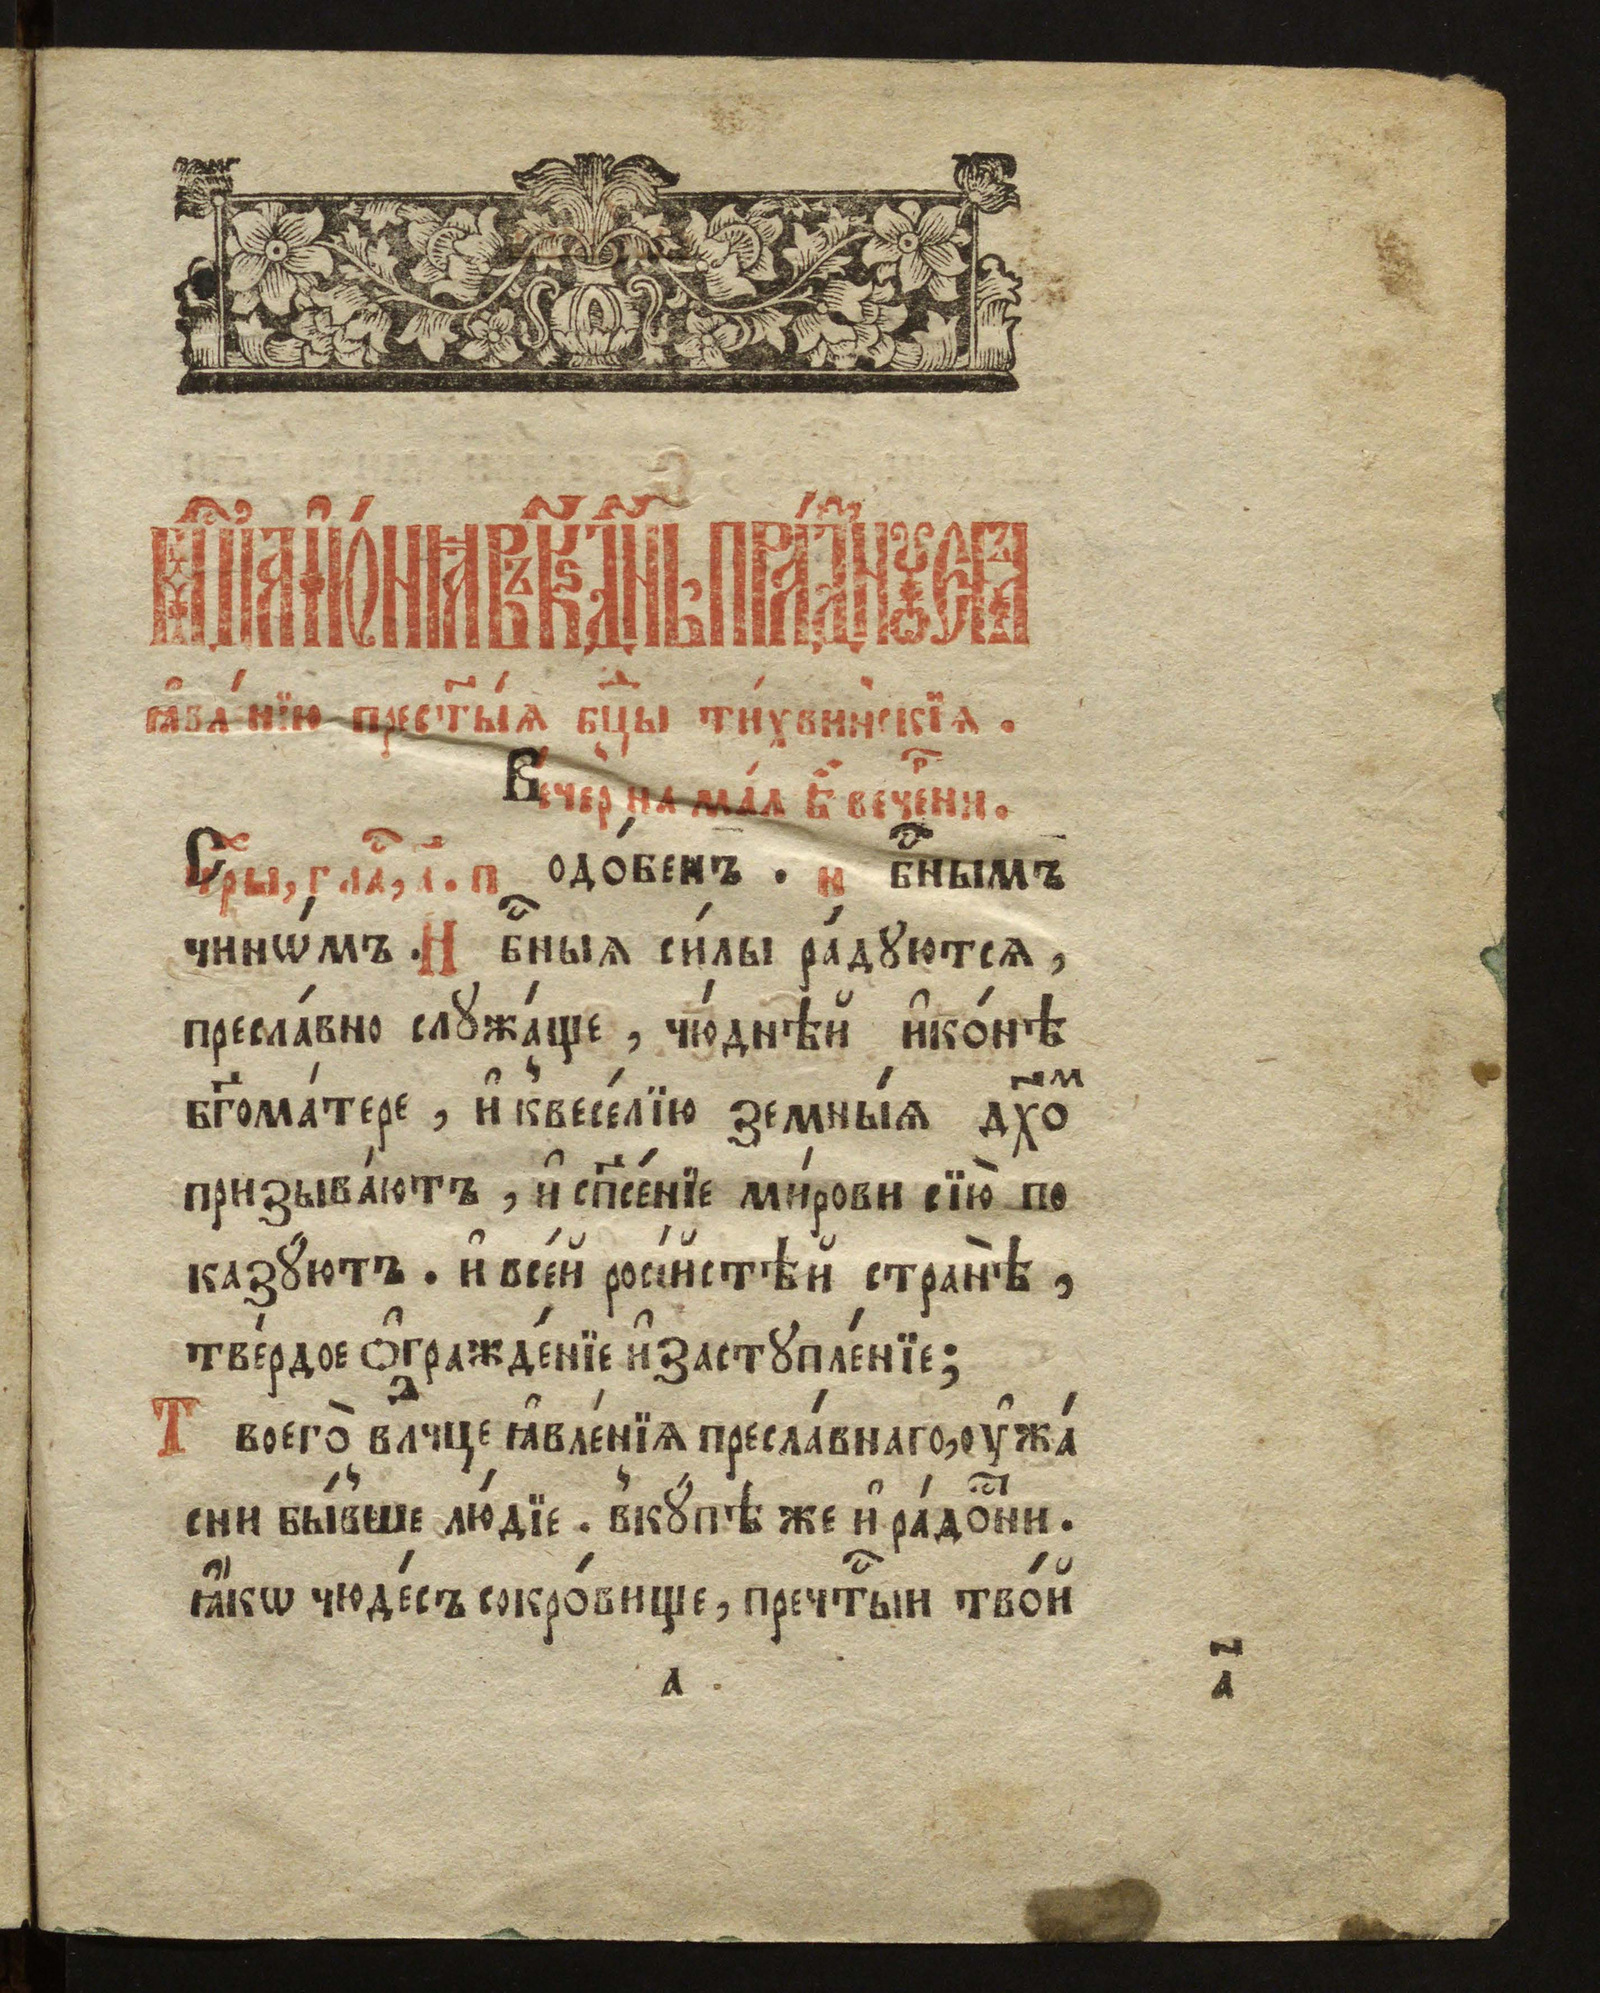 мц҃а і҆ю́нїа въ к҃ѕ де́нь пра́зднуемъ
ꙗ҆вле́нїю прест҃ы́ѧ бц҃ы ти́хвинскїѧ.
Ве́черъ на ма́л в҃ вече́рни.
Ст҃ры, гла҃, д҃. подо́бенъ. нб҃нымъ
чинѡ́мъ. Нб҃ныѧ си́лы ра́дꙋютсѧ,
пресла́вно слꙋжа́ще, чю́днѣй и҆ко́нѣ
бг҃ома́тере, и҆ к̾весе́лїю земны́ѧ дх҃оⷨ
призыва́ютъ, и҆ сп҃се́нїе ми́рови сїю̀ по
казꙋ́ютъ. и҆ все́й росі́йстѣй странѣ̀,
тве́рдое ѻ҆гражде́нїе и҆ застꙋпле́нїе;
Твоегѡ̀ влⷣчце ꙗ҆вле́нїѧ пресла́внаго, оу҆жа́
сни бы́вше лю́дїе. в̾кꙋ́пѣ же и҆ ра́дⷭ҇они.
ꙗ҆́кѡ чюде́съ сокро́вище, пречⷭ҇тый тво́й
а
а҃